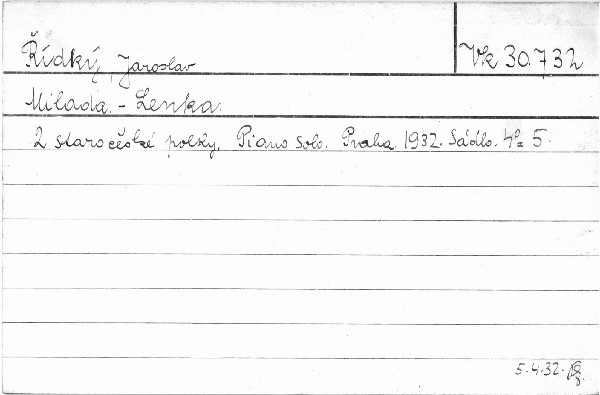 Řídký, Jaroslav
Vk 30.732
Milada. - Lenka.
2 staročeské polky. Piano solo. Praha 1932. Sádlo. 4° 5.
5.4.32.